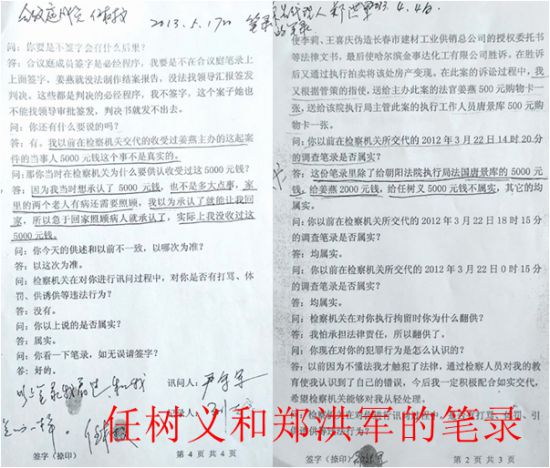 合议庭成员 任树义
2013.5.17日
问：你要是不签字会有什么后果？
答：合议庭成员签字是必经程序，我要是不在合议庭笔录上
上面签字，姜燕就没法制作结案报告，没法找领导汇报签发
判决。这些都是判决的必经程序，我不签字，这个案子她也
不能找领导审批签发，判决书就发不出去。
问：你还有什么要说的吗？
答：有。我以前在检察机关交代的收受过姜燕主办的这起案
件的当事人5000元钱这个事不是真实的。
问：那你当时在检察机关为什么要供认收受过这5000元钱？
答：因为我当时想承认了5000元钱，也不是多大点事，家
里的两个老人有病还需要照顾，我以为承认了就能让我回
家，所以急于回家照顾病人就承认了，实际上我没收过这
5000元钱。
问：你今天的供述和以前不一致，以哪次为准。
答：以这次为准。
问：检察机关在对你进行讯问过程中，对你是否有打骂、体
罚、供诱供等违法行为？
答：没有。
问：你以上说的是否属实？
答：属实。
问：你看一下笔录，如无误请签字？
答：好的。
讯问人：
签字（捺印）
第 4 页 共 4 页
代理人郑洪军
的笔录
使李莉、王喜庆伪造长春市建材工业供销总公司的授权委托书
等法律文书，最后使哈尔滨金事达化工有限公司胜诉。在胜诉
后又通过执行拍卖将该处房产变现。在此案的诉讼过程中，我
又根据管策的指使，送给主办此案的法官姜燕500元购物卡一
张，送给该院执行局主管此案的执行工作人员唐景库500元购物
卡一张。
问：你以前在检察机关所交代的2012年3月22日14时20分
的调查笔录是否属实？
答：这份笔录里除了给朝阳法院执行局法国唐景库的5000元
钱，给姜燕2000元钱，给任树义5000元钱不属实，其它的均
属实。
问：你以前在检察机关所交代的2012年3月22日18时15分
的调查笔录是否属实？
答：均属实。
问：你以前在检察机关所交代的2012年3月22日0时15分
的调查笔录是否属实？
答：均属实。
问：你在对你执行拘留时你为什么翻供？
答：我怕承担法律责任，所以翻供了。
问：你现在对你的犯罪行为是怎么认识的？
答：以前因为不懂法我才触犯了法律，通过检察人员对我的教
育使我认识到了自己的错误，今后我一定积极配合如实交代，
希望检察机关能够对我从轻处理。
签字（捺印）
第 2 页 共 3 页
任树义和郑洪军的笔录